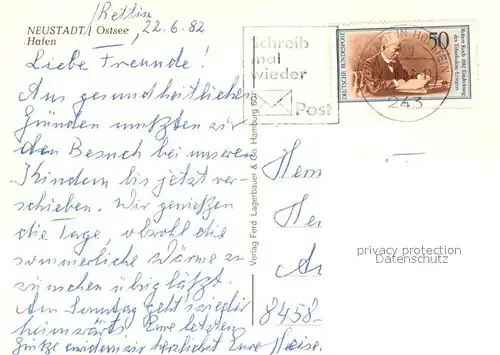 /Rettin
NEUSTADT / Ostsee , 22.6.82
Hafen
Liebe Freunde!
Aus gesundheitlichen
Gründen mußten wir
den Besuch bei unseren
Kindern bis jetzt ver-
schieben. Wir genießen
die Tage, obwohl die
sommerliche Wärme zu
wünschen übrig läßt.
Am Sonntag geht's wieder
heimwärts. Eure letzten
Grüße erwidern wir herzlichst Eure
schreib
mal
wieder
Post
50
DEUTSCHE BUNDESPOST
Robert Koch · 1882 Entdeckung
des Tuberkulose-Erregers
IN HOLSTEIN
243
Verlag Ferd. Lagerbauer & Co. Hamburg
8458
privacy protection
Datenschutz